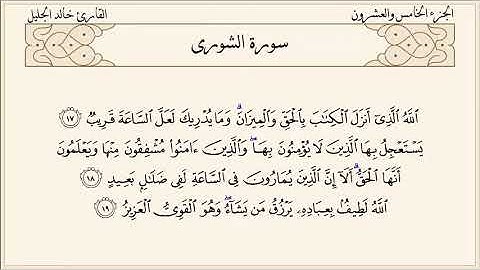 الجزء الخامس والعشرون
القارئ خالد الجليل
سورة الشورى
اللَّهُ الَّذِىٓ أَنزَلَ الْكِتَٰبَ بِالْحَقِّ وَالْمِيزَانَ ۗ وَمَا يُدْرِيكَ لَعَلَّ السَّاعَةَ قَرِيبٌ ١٧
يَسْتَعْجِلُ بِهَا الَّذِينَ لَا يُؤْمِنُونَ بِهَا ۖ وَالَّذِينَ ءَامَنُوا۟ مُشْفِقُونَ مِنْهَا وَيَعْلَمُونَ
أَنَّهَا الْحَقُّ ۗ أَلَآ إِنَّ الَّذِينَ يُمَارُونَ فِى السَّاعَةِ لَفِى ضَلَٰلٍۭ بَعِيدٍ ١٨
اللَّهُ لَطِيفٌۢ بِعِبَادِهِۦ يَرْزُقُ مَن يَشَآءُ ۖ وَهُوَ الْقَوِىُّ الْعَزِيزُ ١٩